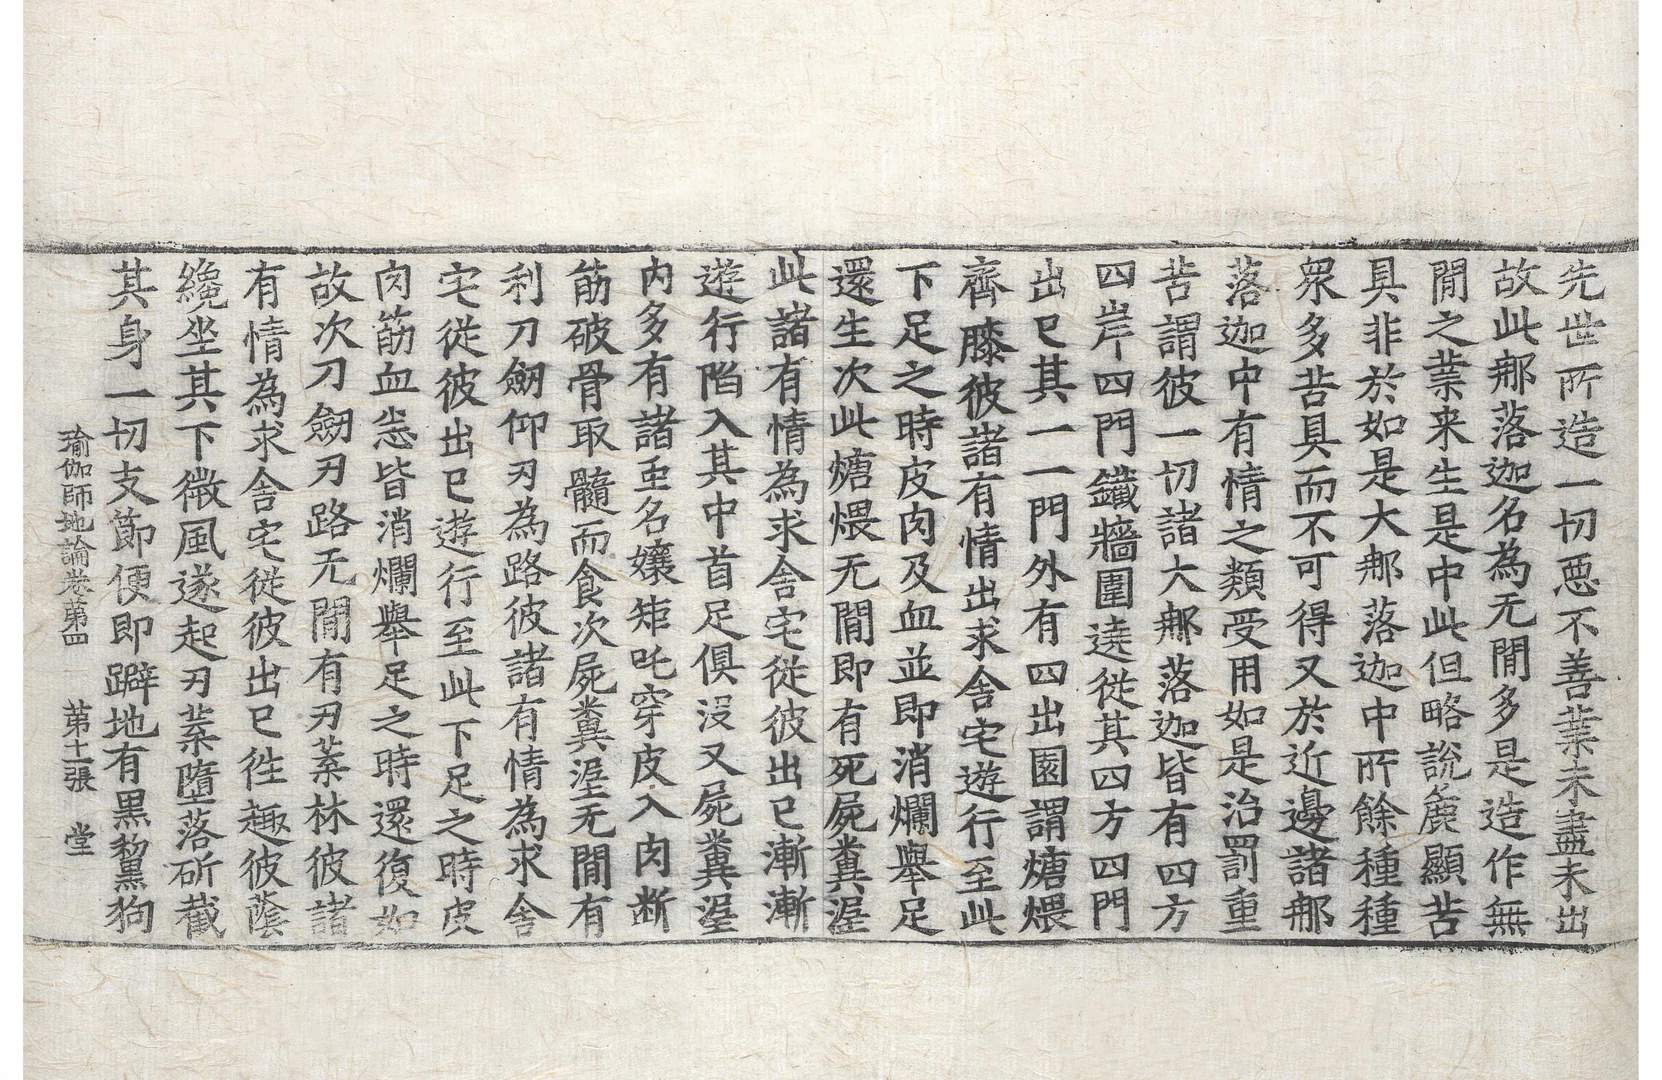 先世所造一切惡不善業未盡未出
故此那落迦名為无閒多是造作無
閒之業来生是中此但略說麁顯苦
具非於如是大那落迦中所餘種種
眾多苦具而不可得又於近邊諸那
落迦中有情之類受用如是治罰重
苦謂彼一切諸大那落迦皆有四方
四岸四門鐵牆圍遶從其四方四門
出已其一一門外有四出園謂煻煨
齊膝彼諸有情出求舍宅遊行至此
下足之時皮肉及血並即消爛舉足
還生次此煻煨无閒即有死屍糞泥
此諸有情為求舍宅從彼出已漸漸
遊行陷入其中首足俱沒又屍糞泥
內多有諸虫名孃矩吒穿皮入肉断
筋破骨取髓而食次屍糞泥无閒有
利刀劒仰刃為路彼諸有情為求舍
宅從彼出已遊行至此下足之時皮
肉筋血悉皆消爛舉足之時還復如
故次刀劒刃路无閒有刃葉林彼諸
有情為求舍宅從彼出已往趣彼蔭
纔坐其下微風遂起刃葉墮落斫截
其身一切支節便即躃地有黑黧狗
瑜伽師地論卷第四 第十一張 堂